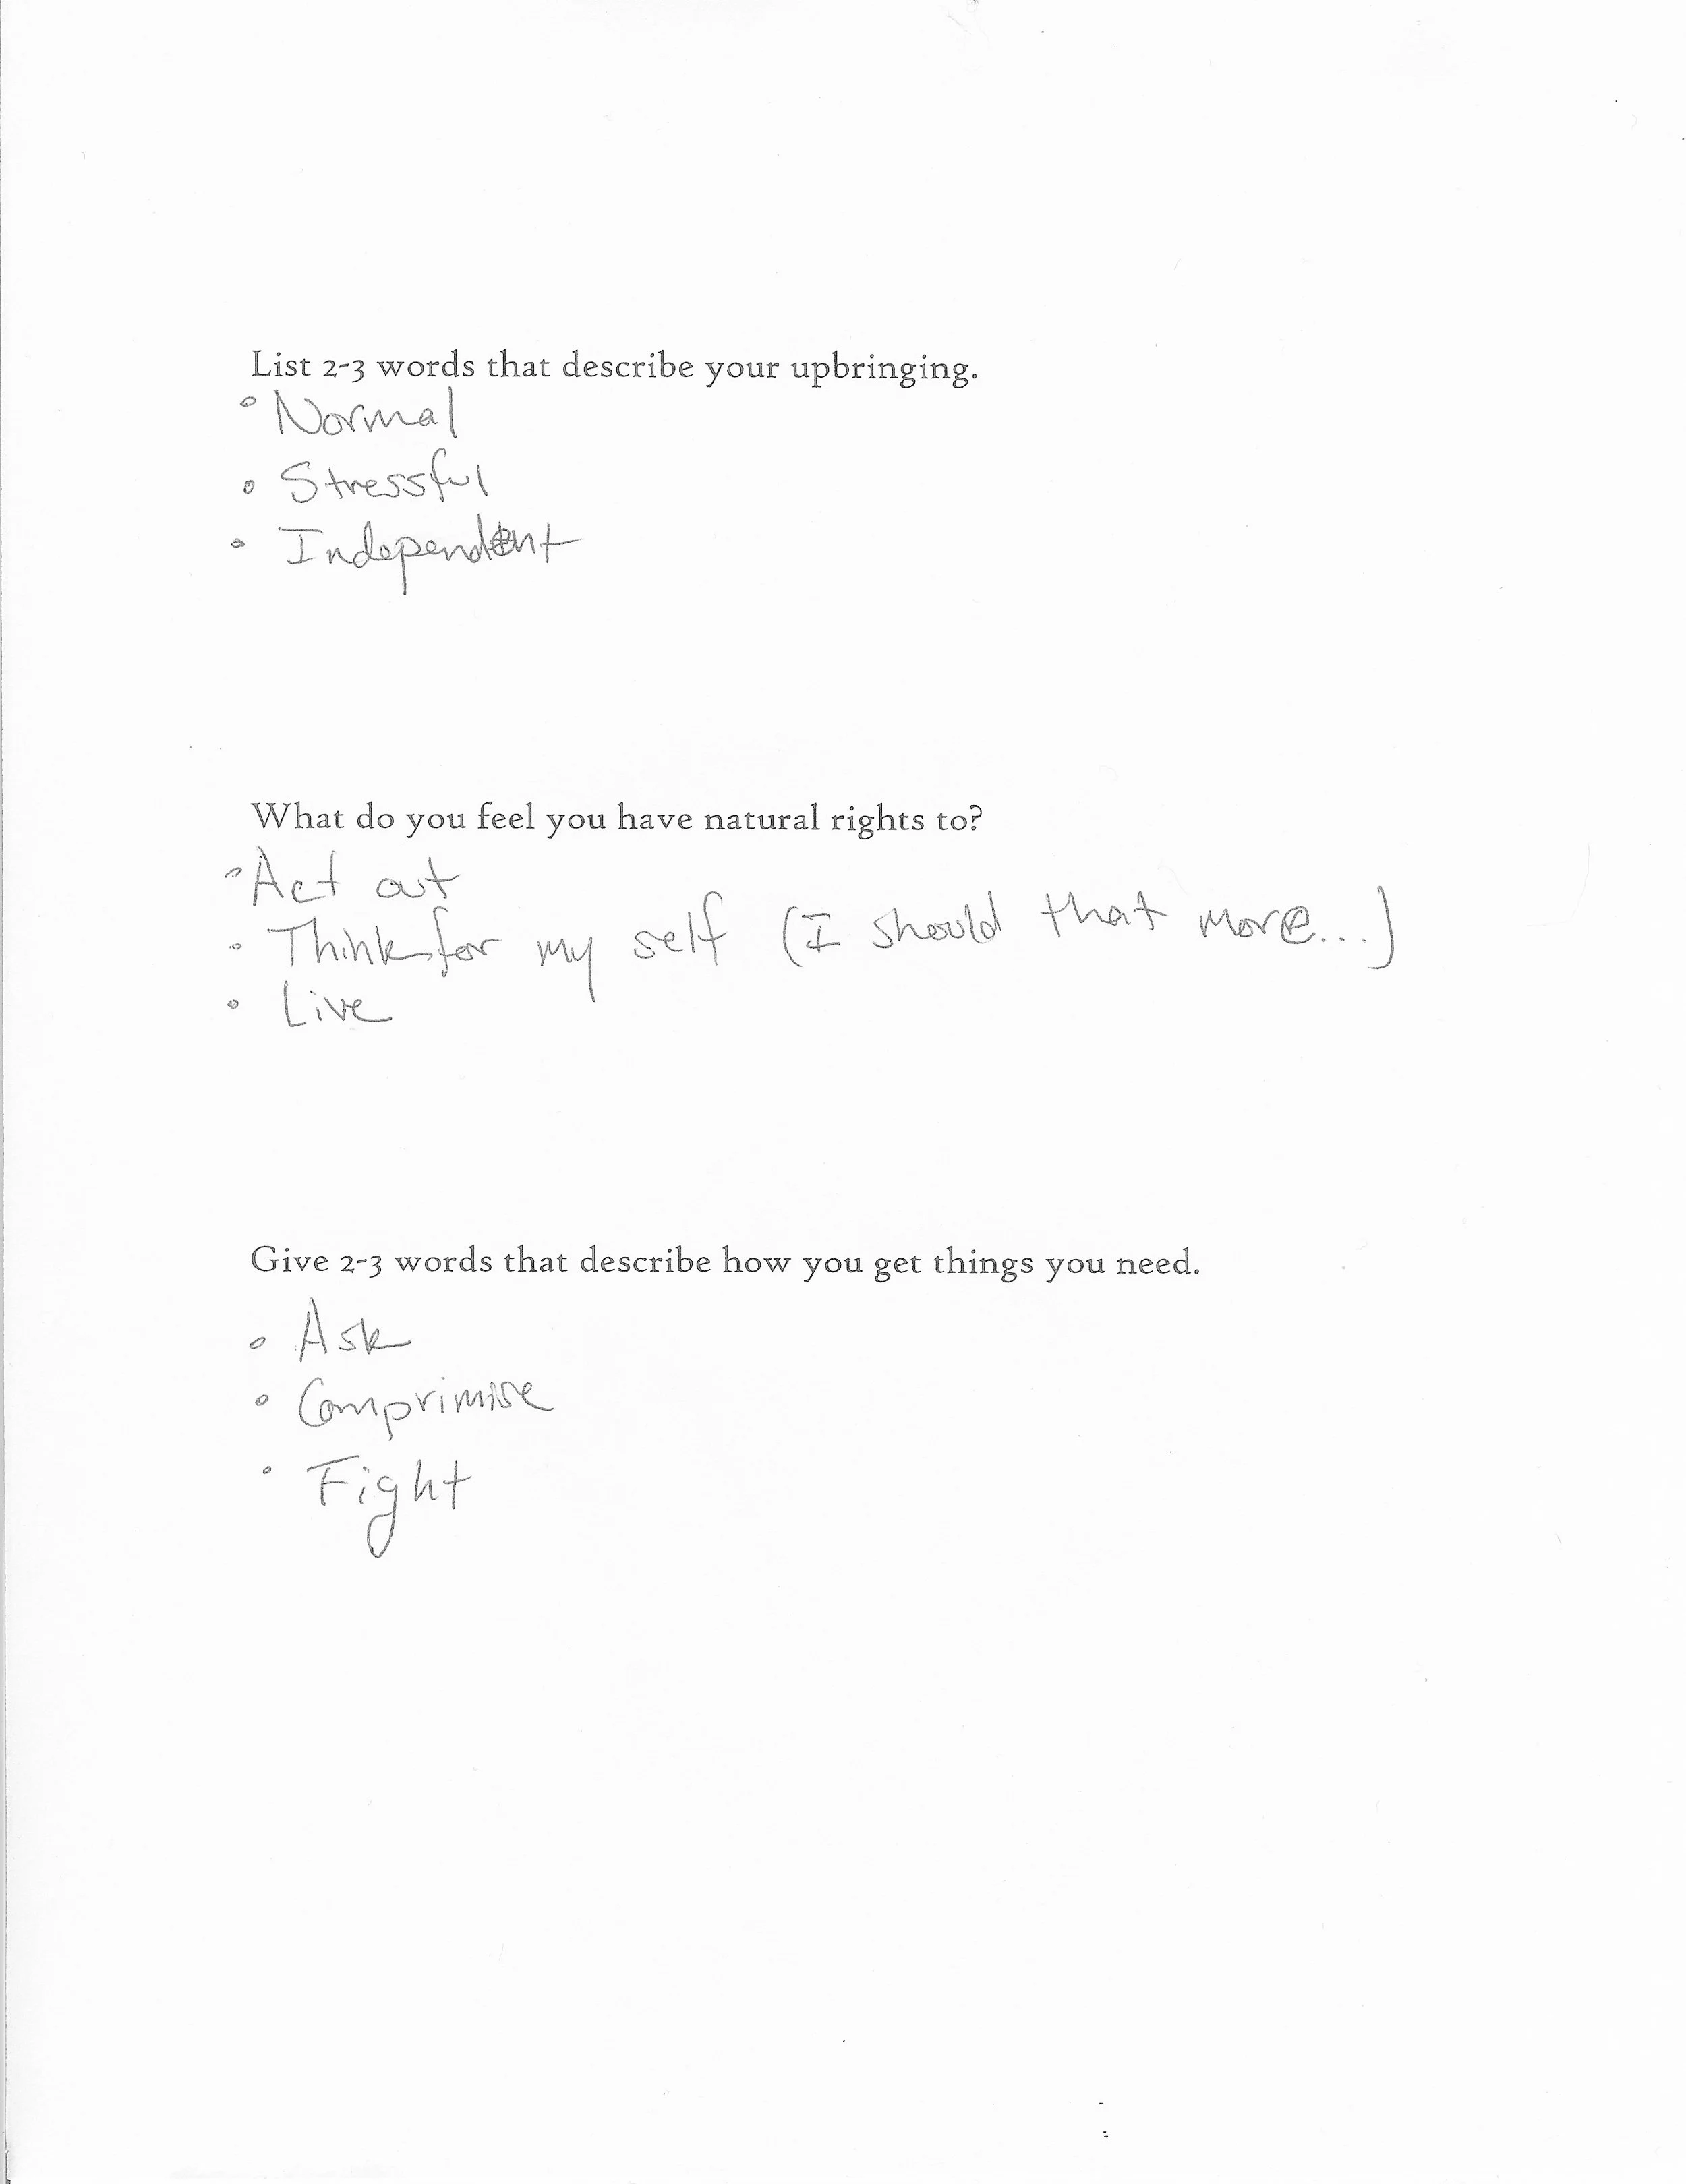 List 2-3 words that describe your upbringing.
• Normal
• Stressful
• Independent
What do you feel you have natural rights to?
• Act out
• Think for my self (I should that more...)
• Live
Give 2-3 words that describe how you get things you need.
• Ask
• Comprimise
• Fight